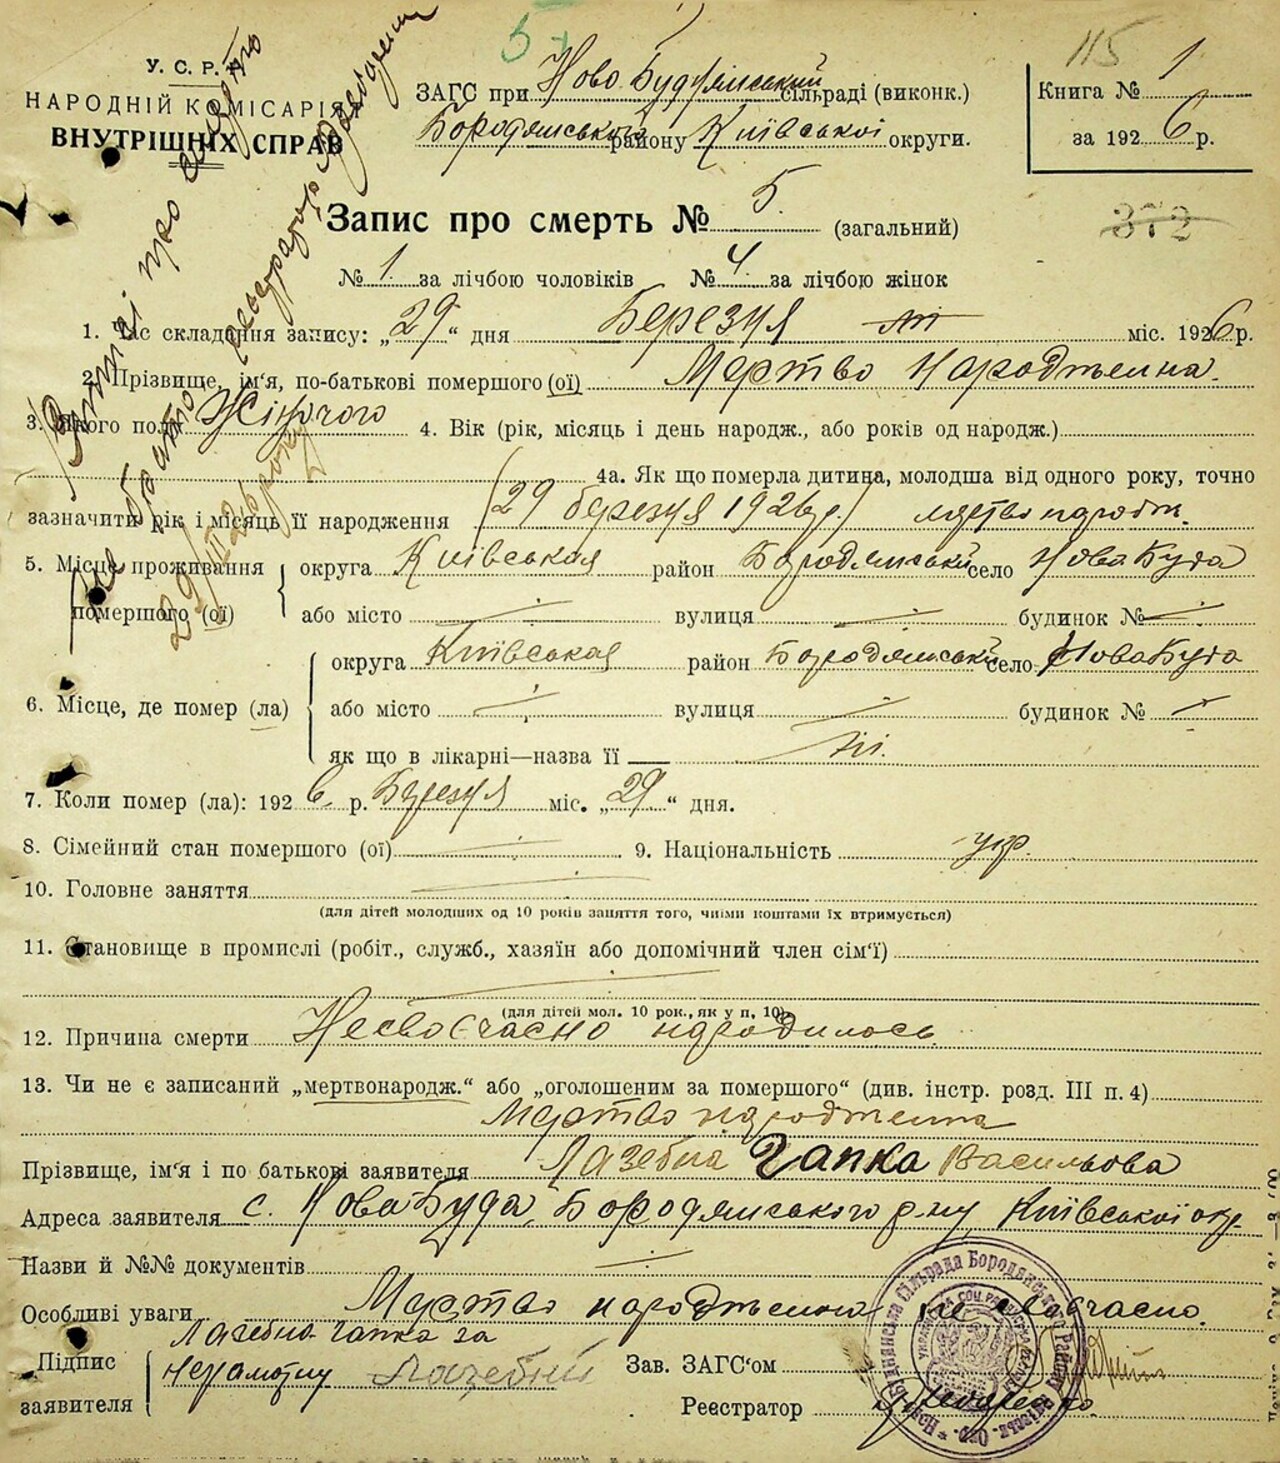 5
115
У. С. Р. Р.
НАРОДНІЙ КОМІСАРІЯТ
ВНУТРІШНІХ СПРАВ
ЗАГС при Ново Будянський сільраді (виконк.)
Бородянського району Київської округи.
Книга № 1
за 1926 р.
372
Запис про смерть № 5. (загальний)
№ 1. за лічбою чоловіків № 4. за лічбою жінок
1. Час складання запису: „29“ дня Березня міс. 1926 р.
2. Прізвище, ім'я, по-батькові помершого (ої) Мертво народженна.
3. Якого полу Жіночого 4. Вік (рік, місяць і день народж., або років од народж.)
4а. Як що померла дитина, молодша від одного року, точно
зазначити рік і місяць її народження (29 березня 1926 р.) мертво народж.
5. Місце проживання помершого (ої) округа Київська район Бородянський село Нова Буда
або місто вулиця будинок №
6. Місце, де помер (ла) округа Київська район Бородянський село Нова Буда
або місто вулиця будинок №
як що в лікарні—назва її ні.
7. Коли помер (ла): 1926 р. Березня міс. „29“ дня.
8. Сімейний стан помершого (ої) 9. Національність укр.
10. Головне заняття
(для дітей молодших од 10 років заняття того, чиїми коштами їх втримується)
11. Становище в промислі (робіт., служб., хазяїн або допомічний член сім'ї)
(для дітей мол. 10 рок., як у п. 10)
12. Причина смерти Несвоєчасно народилось
13. Чи не є записаний „мертвонародж.“ або „оголошеним за помершого“ (див. інстр. розд. III п. 4)
Мертво народженна
Прізвище, ім'я і по батькові заявителя Лазебна Гапка Васильова
Адреса заявителя с. Нова Буда, Бородянського р-ну Київської окр.
Назви й №№ документів
Особливі уваги Мертво народженна не своєчасно.
Підпис заявителя Лазебна Гапка за
неграмотну Лазебний
Зав. ЗАГС'ом
Реєстратор
Витяг про смерть
29/III 26 року